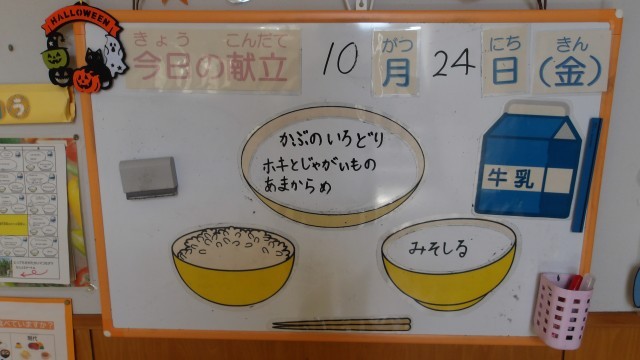 HALLOWEEN
きょう こんだて
今日の献立
10月24日(金)
がつ にち きん
かぶのいろどり
ホキとじゃがいもの
あまからめ
牛乳
みそしる